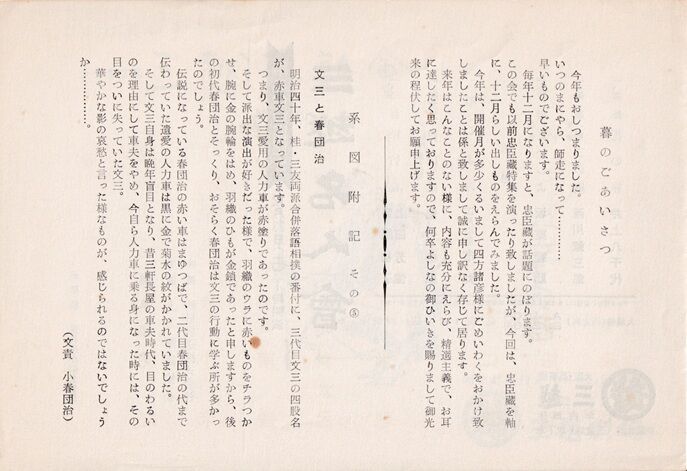 暮のごあいさつ
今年もおしつまりました。
いつのまにやら、師走になって…………
早いものでございます。
毎年十二月になりますと、忠臣蔵が話題にのぼります。
この会でも以前忠臣蔵特集を演ったり致しましたが、今回は、忠臣蔵を軸
に、十二月らしい出しものをえらんでみました。
今年は、開催月が多少くるいまして四方諸彦様にごめいわくをおかけ致
しましたことは係と致しまして誠に申し訳なく存じて居ります。
来年はこんなことのない様に、内容も充分にえらび、精選主義で、お耳
に達したく思っておりますので、何卒よしなの御ひいきを賜りまして御光
来の程伏してお願申上げます。
系図附記 その⑤
文三と春団治
明治四十年、桂・三友両派合併落語相撲の番付に、三代目文三の四股名
が、赤車文三となっています。
つまり、文三愛用の人力車が赤塗りであったのです。
そして派出な演出が好きだった様で、羽織のウラに赤いものをチラつか
せ、腕に金の腕輪をはめ、羽織のひもが金鎖であったと申しますから、後
の初代春団治とそっくり、おそらく春団治は文三の行動に学ぶ所が多かっ
たのでしょう。
伝説になっている春団治の赤い車はまゆつばで、二代目春団治の代まで
伝わっていた遺愛の人力車は黒に金で菊水の紋がかかれていました。
そして文三自身は晩年盲目となり、昔三軒長屋の車夫時代、目のわるい
のを理由にして車夫をやめ、今自ら人力車に乗る身になった時には、その
目をついに失っていた文三。
華やかな影の哀愁と言った様なものが、感じられるのではないでしょう
か……………。
（文責 小春団治）